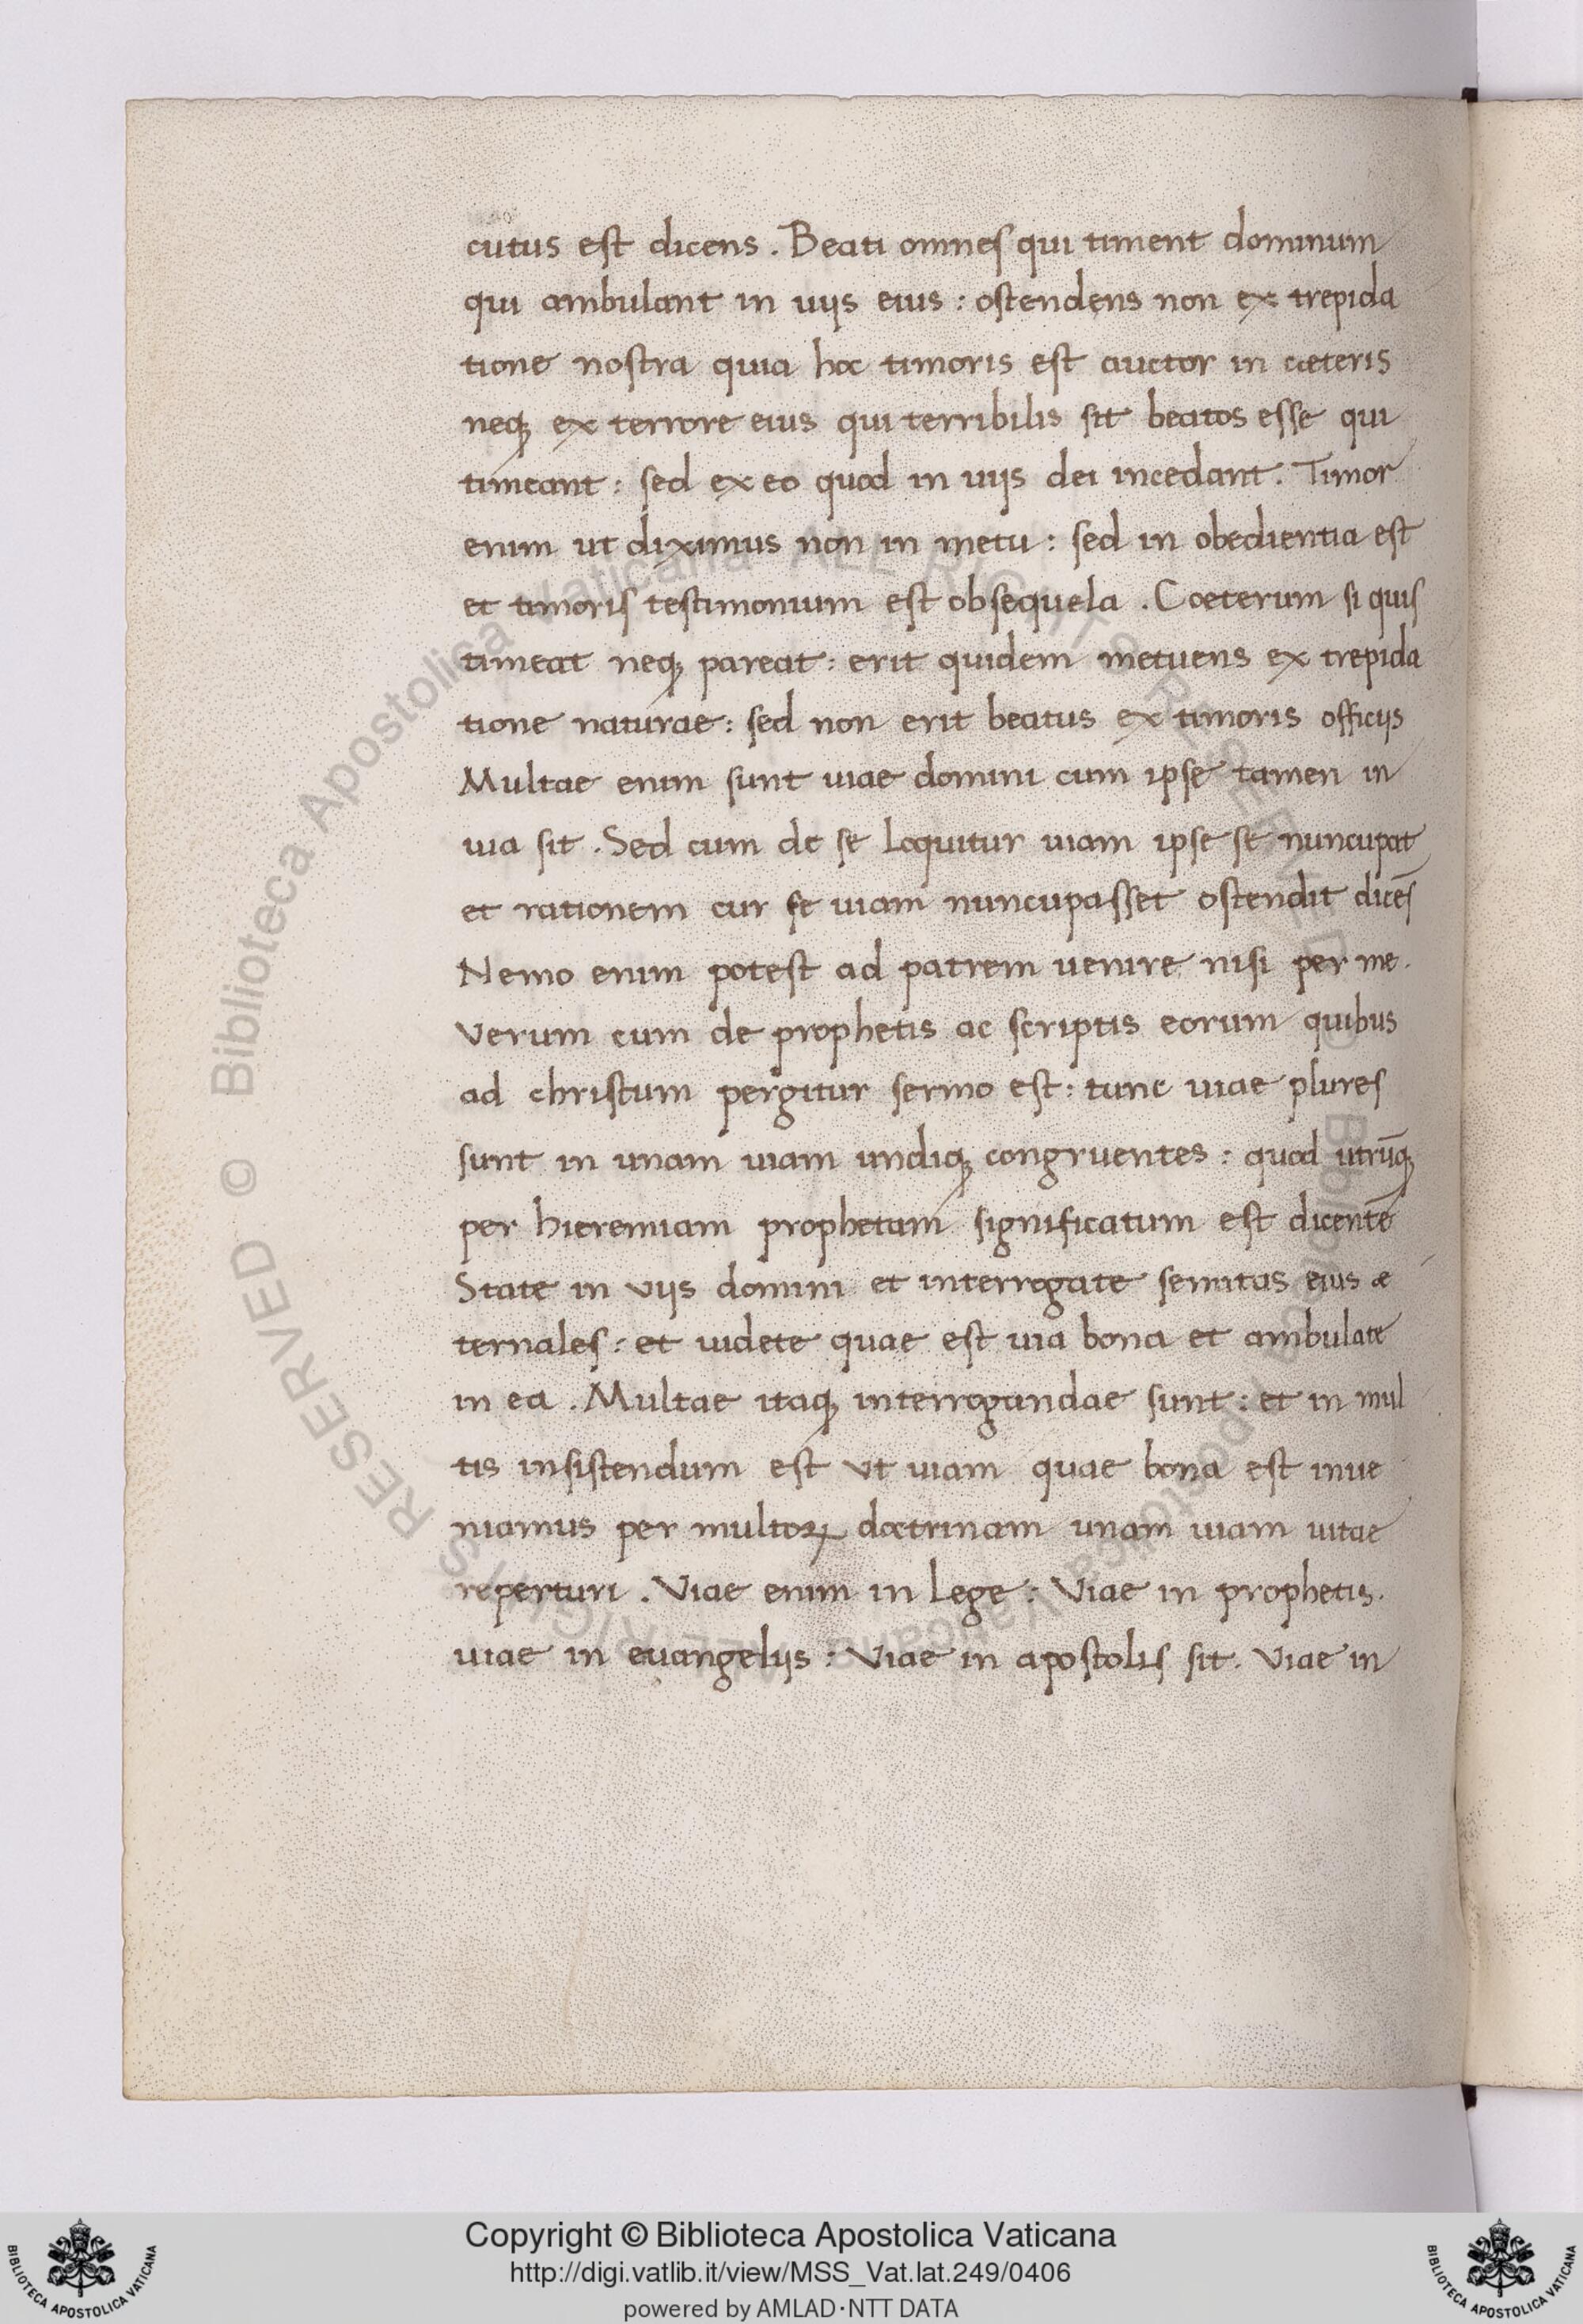 cutus est dicens . Beati omnes qui timent dominum
qui ambulant in uijs eius : ostendens non ex trepida
tione nostra quia hoc timoris est auctor in cæteris
neq; ex terrore eius qui terribilis sit beatos esse qui
timeant : sed ex eo quod in uijs dei incedant . Timor
enim ut diximus non in metu : sed in obedientia est
et timoris testimonium est obsequela . Coeterum si quis
timeat neq; pareat : erit quidem metuens ex trepida
tione naturae : sed non erit beatus ex timoris officijs
Multae enim sunt uiae domini cum ipse tamen in
uia sit . Sed cum de se loquitur uiam ipse se nuncupat
et rationem cur se uiam nuncupasset ostendit dicēs
Nemo enim potest ad patrem uenire nisi per me .
Verum cum de prophetis ac scriptis eorum quibus
ad christum pergitur sermo est : tunc uiae plures
sunt in unam uiam undiq; congruentes : quod utrūq;
per hieremiam prophetam significatum est dicentē
State in viis domini et interrogate semitas eius æ
ternales : et uidete quae est uia bona et ambulate
in ea . Multae itaq; interrogandae sunt : et in mul
tis insistendum est vt uiam quae bona est inue
niamus per multoꝝ doctrinam unam uiam uitae
reperturi . Viae enim in lege : Viae in prophetis .
uiae in euangelijs : Viae in apostolis sit . Viae in
© Biblioteca Apostolica Vaticana ALL RIGHTS RESERVED © Biblioteca Apostolica Vaticana ALL RIGHTS RESERVED
Copyright © Biblioteca Apostolica Vaticana
http://digi.vatlib.it/view/MSS_Vat.lat.249/0406
powered by AMLAD·NTT DATA
BIBLIOTECA APOSTOLICA VATICANA
BIBLIOTECA APOSTOLICA VATICANA